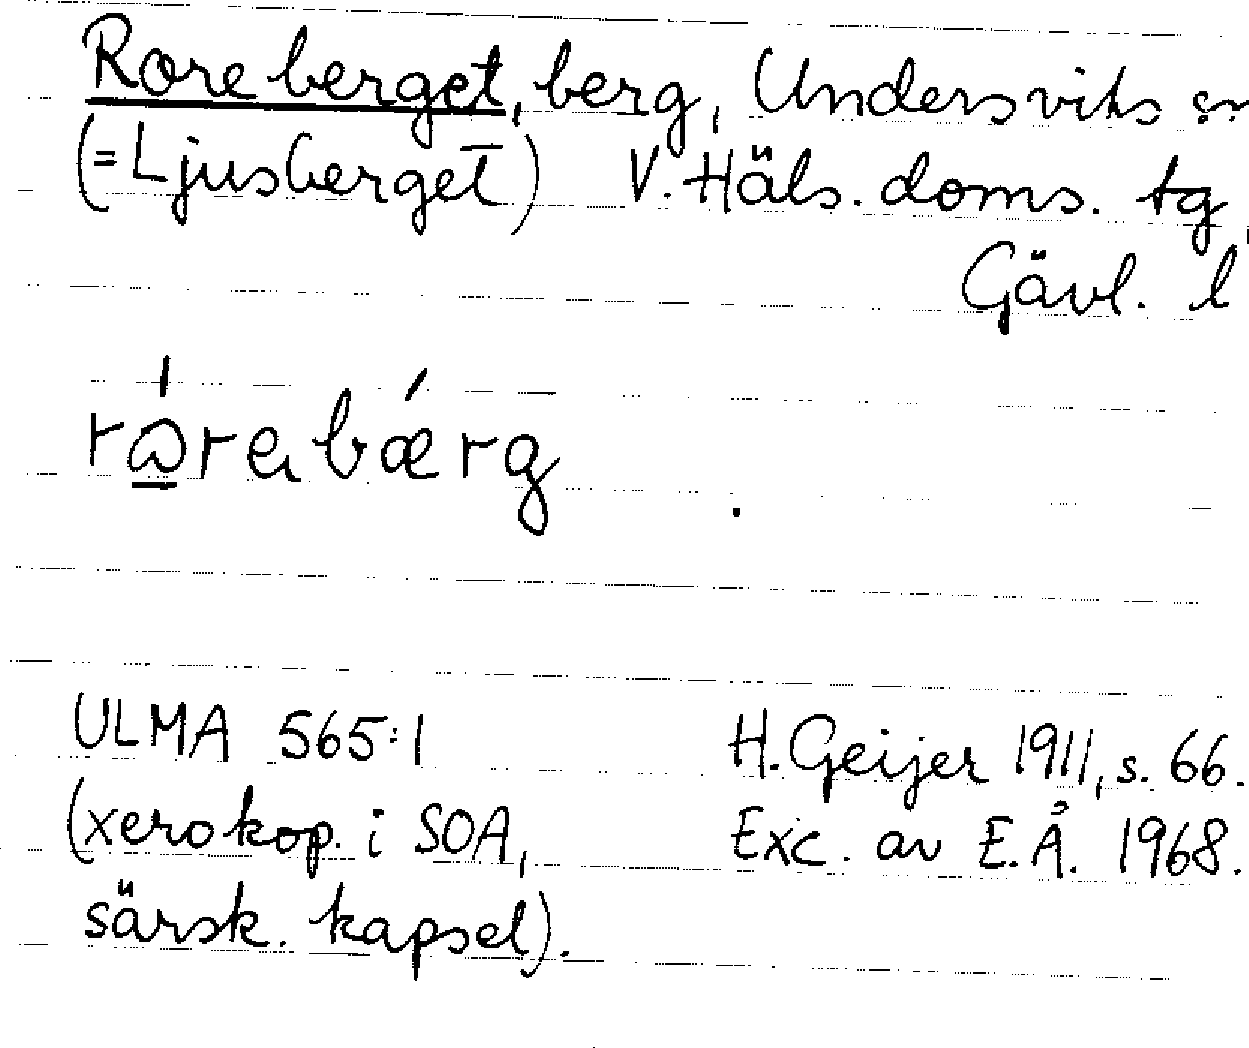 Roreberget, berg, Undersviks sn
(=Ljusberget) V. Häls. doms. tg,
Gävl. l
ULMA 565:1 H. Geijer 1911, s. 66.
(xerokop. i SOA, Exc. av E.Å. 1968.
särsk. kapsel).